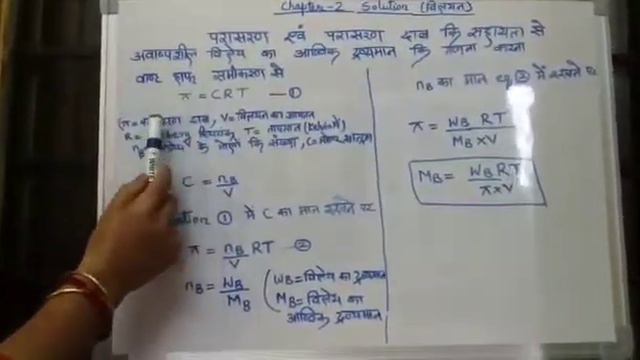 Chapter-2 Solution (विलयन)
परासरण एवं परासरण दाब कि सहायता से
अवाष्पशील विलेय का आण्विक द्रव्यमान कि गणना करना
वाण्ट हाफ समीकरण से
π = CRT — ①
दाब, V = विलयन का आयतन
R = नियतांक T = तापमान (Kelvin में)
के मोलो कि संख्या, C =
C = nB/V
① में C का मान रखने पर
π = nB/V RT ②
nB = WB/MB
(WB = विलेय का द्रव्यमान
MB = विलेय का
आण्विक द्रव्यमान
nB का मान eq ② में रखने पर
π = WB RT / MB × V
MB = WB RT / π × V